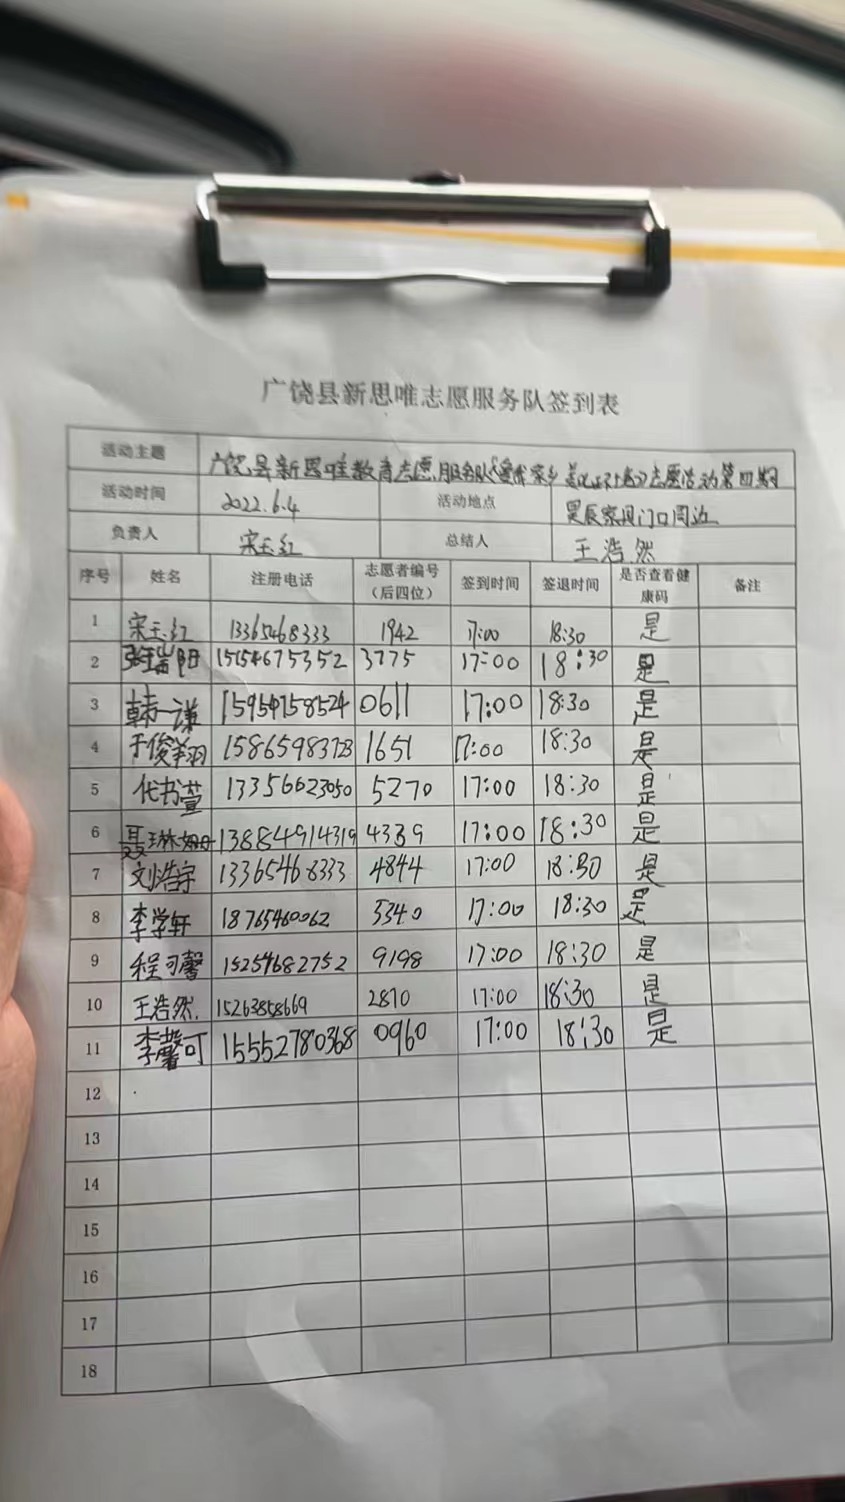 广饶县新思唯志愿服务队签到表
活动主题 广饶县新思唯教育志愿服务队《爱我家乡 美化环境》志愿活动第四期
活动时间 2022.6.4 活动地点 昊辰家园门口周边
负责人 宋玉红 总结人 王浩然
序号 姓名 注册电话 志愿者编号（后四位） 签到时间 签退时间 是否查看健康码 备注
1 宋玉红 13365468333 1942 17:00 18:30 是
2 张瑞阳 15154675352 3775 17:00 18:30 是
3 韩一谦 15954758524 0611 17:00 18:30 是
4 于俊羽 15865983723 1651 17:00 18:30 是
5 代书萱 13356623050 5270 17:00 18:30 是
6 聂琳姆 13884914319 4339 17:00 18:30 是
7 刘浩宇 13365468333 4844 17:00 18:30 是
8 李学轩 18765460062 3340 17:00 18:30 是
9 程可馨 15257682752 9198 17:00 18:30 是
10 王浩然. 15263858669 2870 17:00 18:30 是
11 李馨可 15552780368 0960 17:00 18:30 是
12
13
14
15
16
17
18